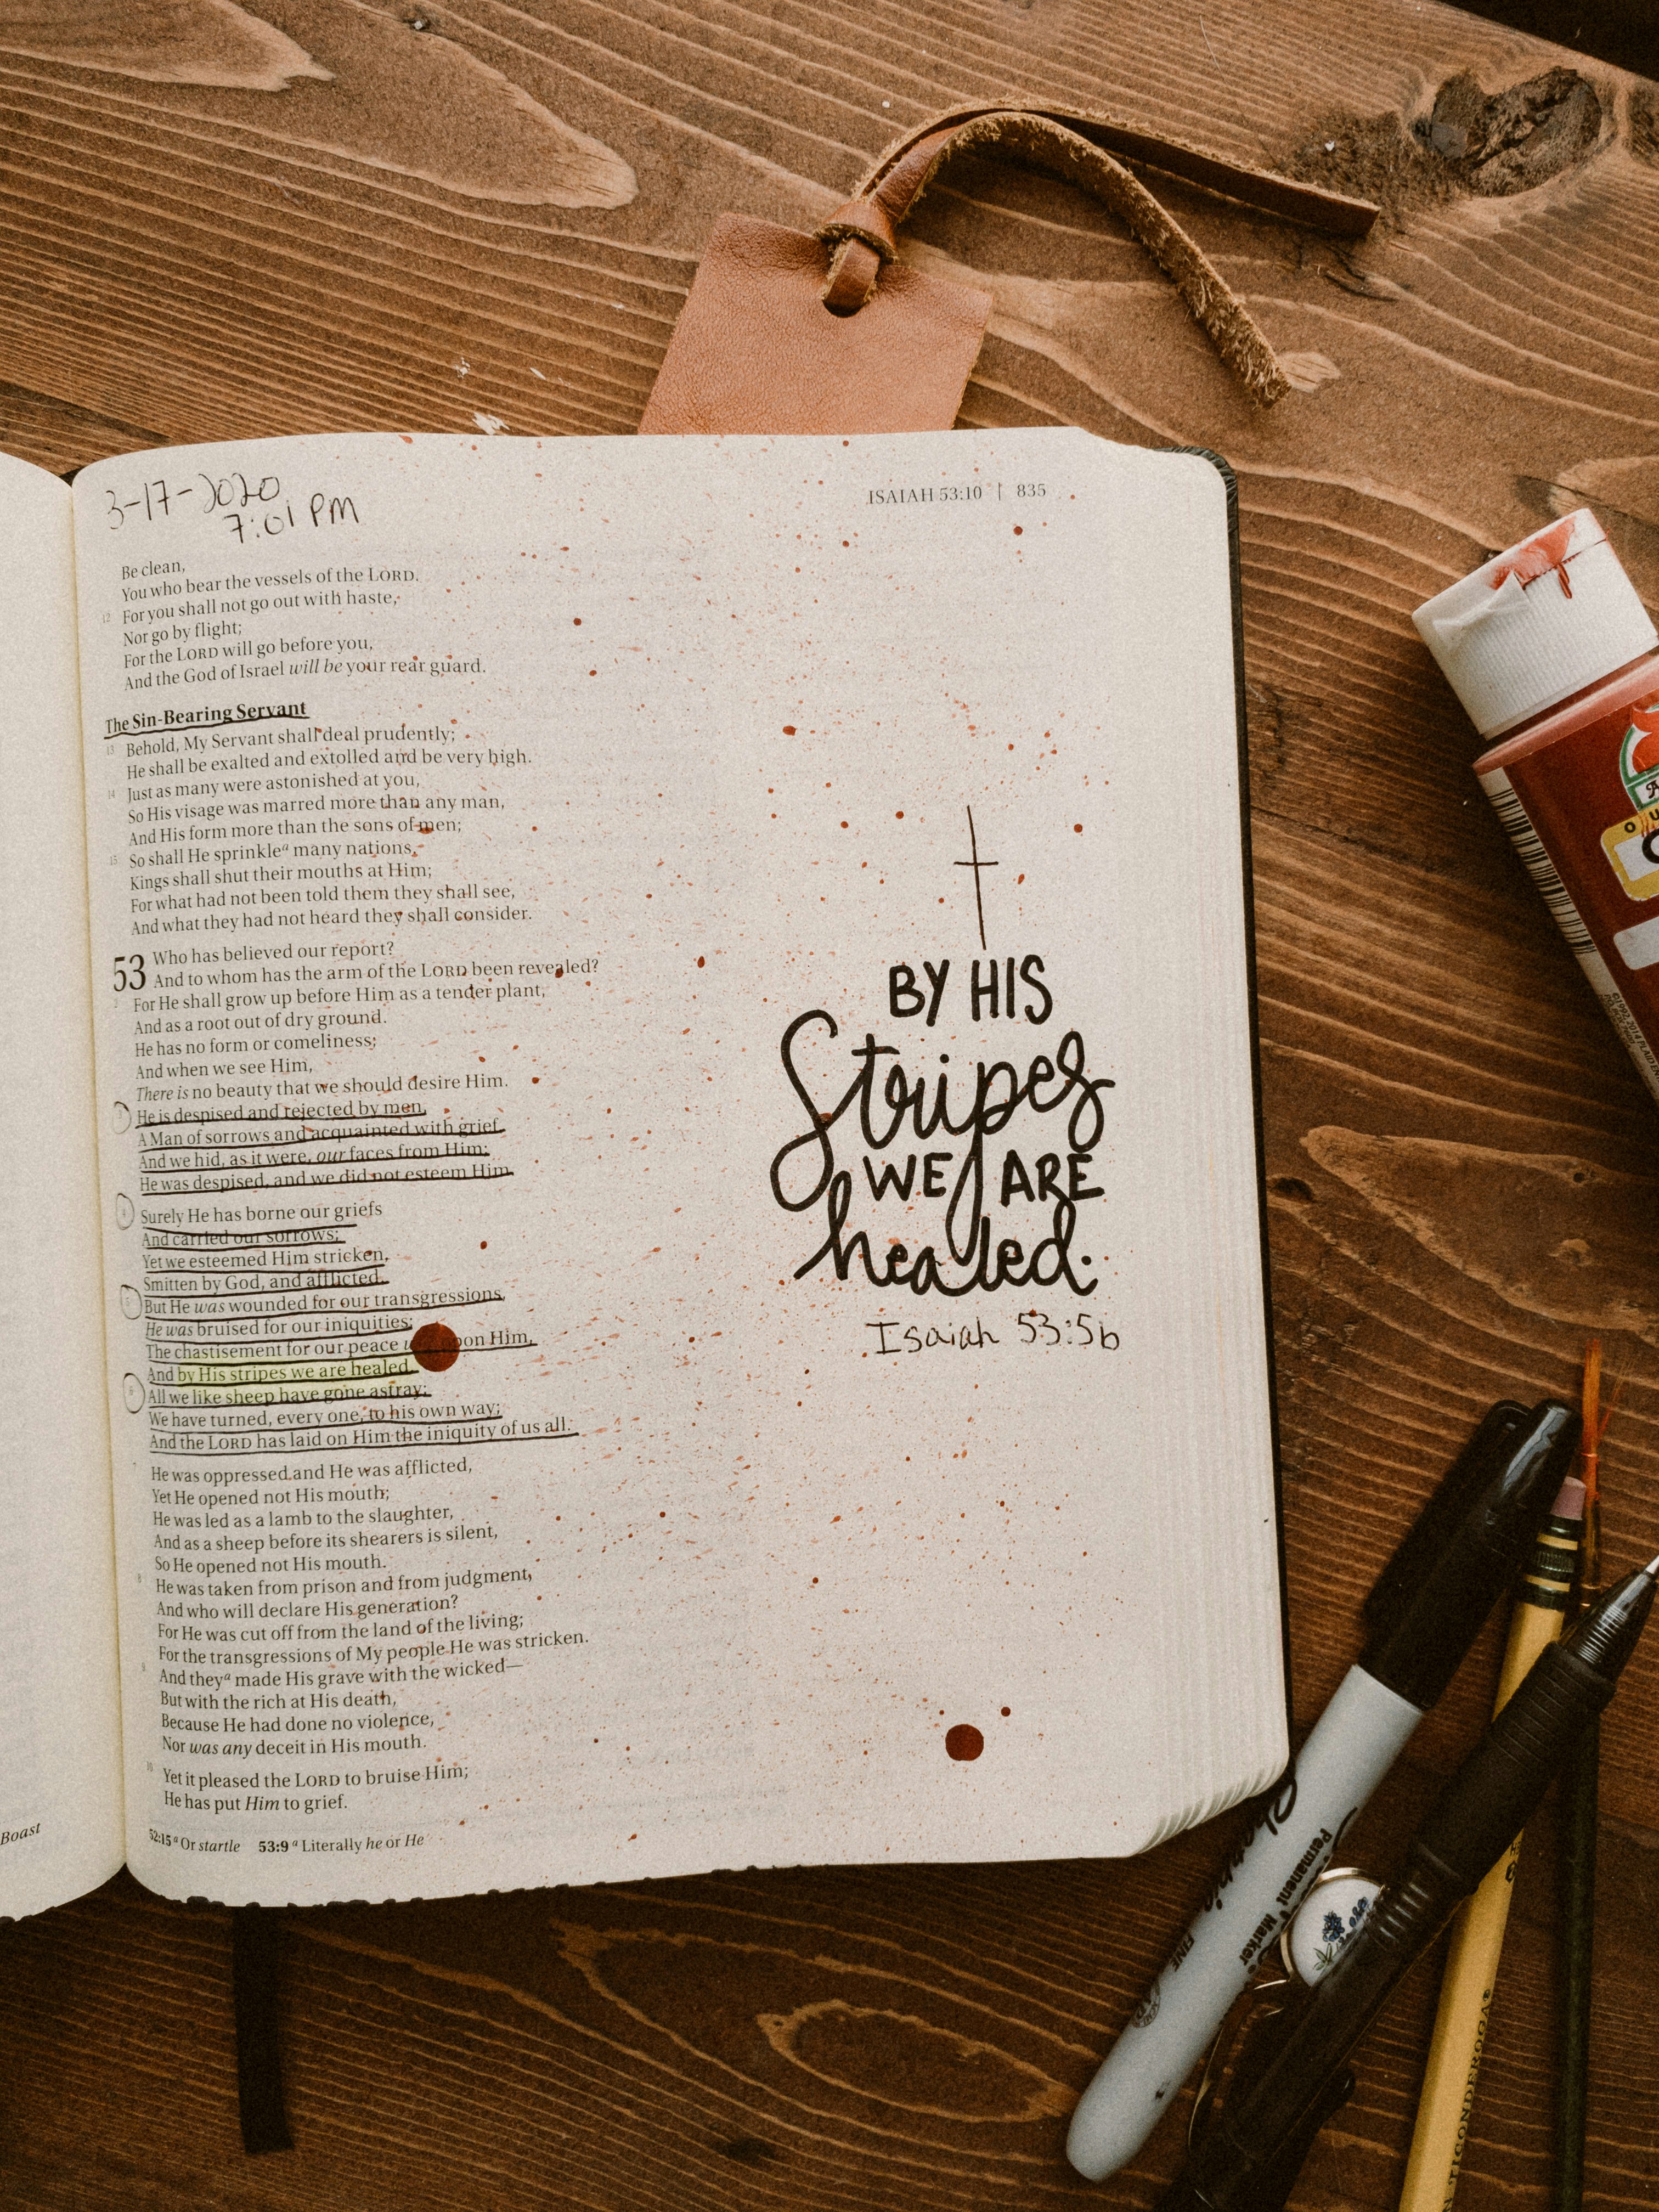 3-17-2020
7:01 PM
ISAIAH 53:10 | 835
Be clean,
You who bear the vessels of the LORD.
12 For you shall not go out with haste,
Nor go by flight;
For the LORD will go before you,
And the God of Israel will be your rear guard.
The Sin-Bearing Servant
13 Behold, My Servant shall deal prudently;
He shall be exalted and extolled and be very high.
14 Just as many were astonished at you,
So His visage was marred more than any man,
And His form more than the sons of men;
15 So shall He sprinkleᵃ many nations.
Kings shall shut their mouths at Him;
For what had not been told them they shall see,
And what they had not heard they shall consider.
53 Who has believed our report?
And to whom has the arm of the LORD been revealed?
2 For He shall grow up before Him as a tender plant,
And as a root out of dry ground.
He has no form or comeliness;
And when we see Him,
There is no beauty that we should desire Him.
He is despised and rejected by men,
A Man of sorrows and acquainted with grief.
And we hid, as it were, our faces from Him;
He was despised, and we did not esteem Him.
4 Surely He has borne our griefs
And carried our sorrows;
Yet we esteemed Him stricken,
Smitten by God, and afflicted.
5 But He was wounded for our transgressions,
He was bruised for our iniquities;
The chastisement for our peace upon Him,
And by His stripes we are healed.
6 All we like sheep have gone astray;
We have turned, every one, to his own way;
And the LORD has laid on Him the iniquity of us all.
7 He was oppressed and He was afflicted,
Yet He opened not His mouth;
He was led as a lamb to the slaughter,
And as a sheep before its shearers is silent,
So He opened not His mouth.
8 He was taken from prison and from judgment,
And who will declare His generation?
For He was cut off from the land of the living;
For the transgressions of My people He was stricken.
9 And theyᵃ made His grave with the wicked—
But with the rich at His death,
Because He had done no violence,
Nor was any deceit in His mouth.
10 Yet it pleased the LORD to bruise Him;
He has put Him to grief.
52:15 ᵃ Or startle 53:9 ᵃ Literally he or He
BY HIS
Stripes
WE ARE
healed.
Isaiah 53:5b
Boast
Sharpie
Permanent Marker
FINE
TICONDEROGA®